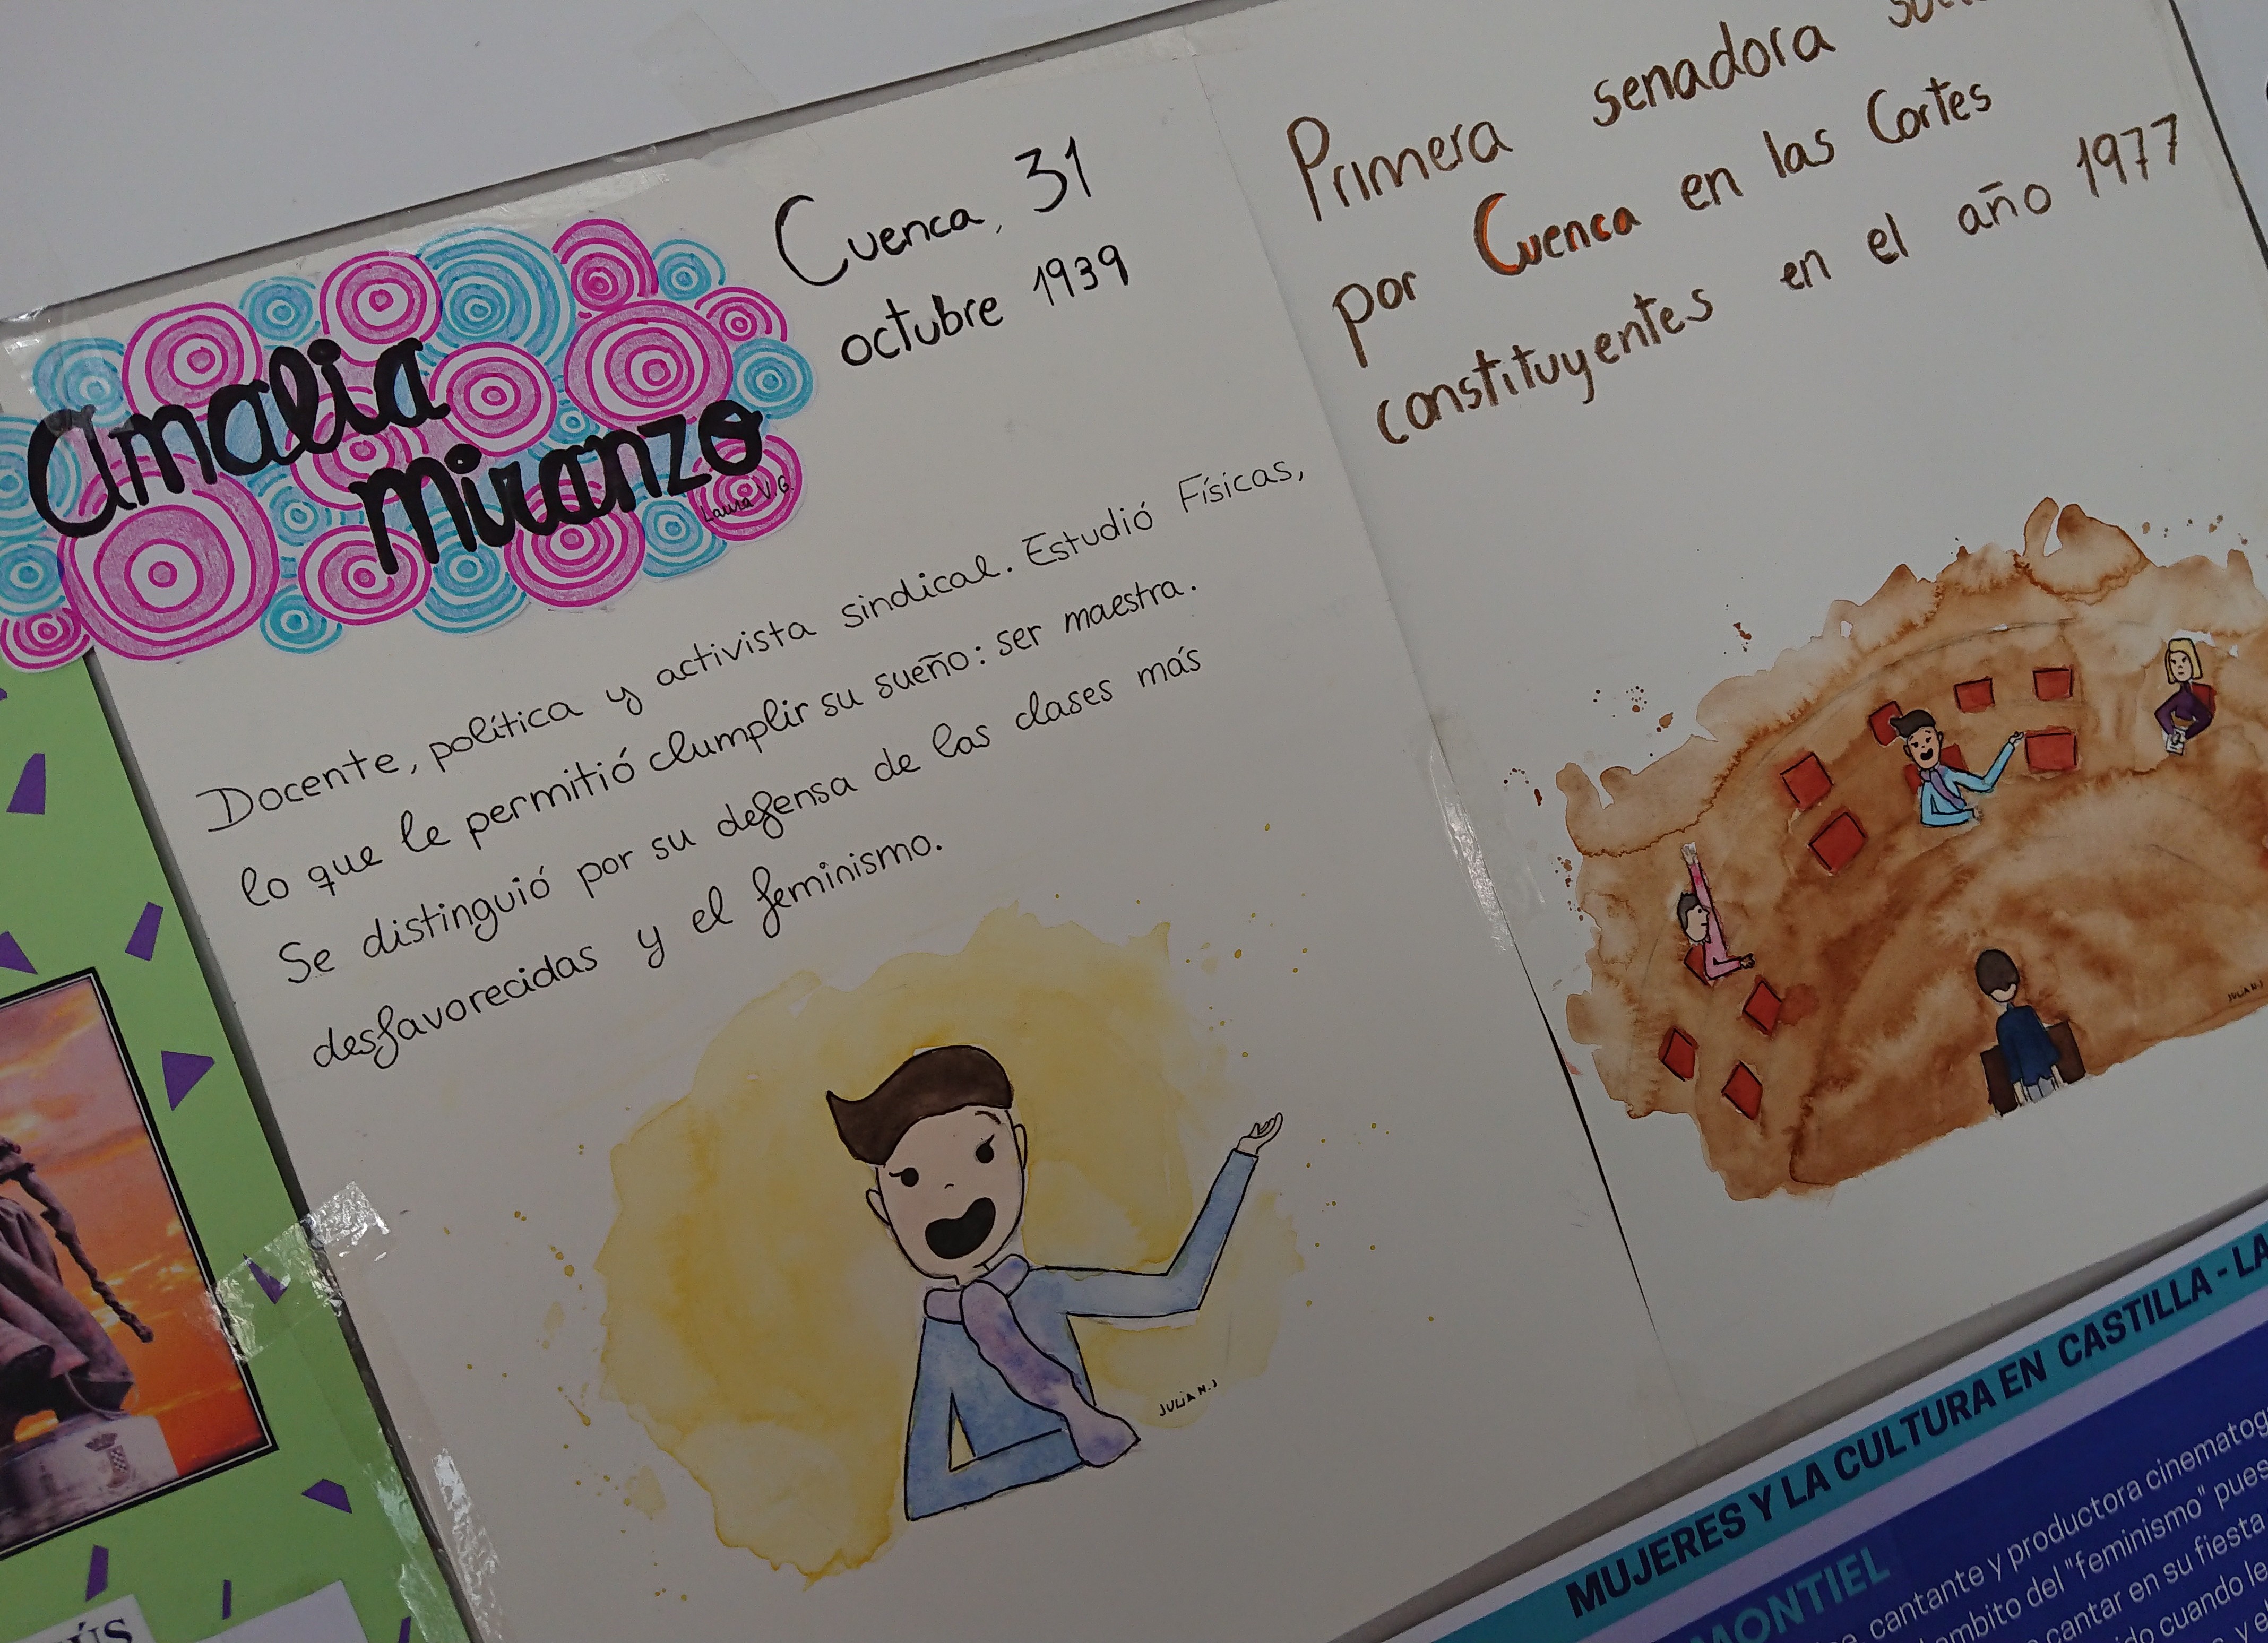 Amalia
Miranzo
Laura V.G.
Cuenca, 31
octubre 1939
Docente, política y activista sindical. Estudió Físicas,
lo que le permitió clumplir su sueño: ser maestra.
Se distinguió por su defensa de las clases más
desfavorecidas y el feminismo.
JULIA N.J
Primera senadora
por Cuenca en las Cortes
constituyentes en el año 1977
JULIA N.J
MUJERES Y LA CULTURA EN CASTILLA - LA
MONTIEL
cantante y productora
del "feminismo"
cantar en su fiesta
cuando